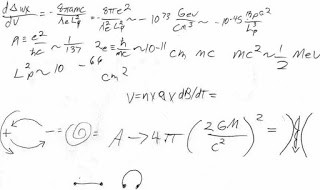 dΔωx/dV = - 8παmc/λeL²p = - 8πe²/λ²eL²p ~ - 10⁷³ GeV/cm³ ~ - 10-45 mpc²/L³p
α ≡ e²/ħc ~ 1/137 λe = ħ/mc ~ 10-11 cm mc mc² ~ 1/2 MeV
L²p ~ 10 -66 cm²
V = n x q x dB/dt =
+ - = = A → 4π (2GM/c²)² =